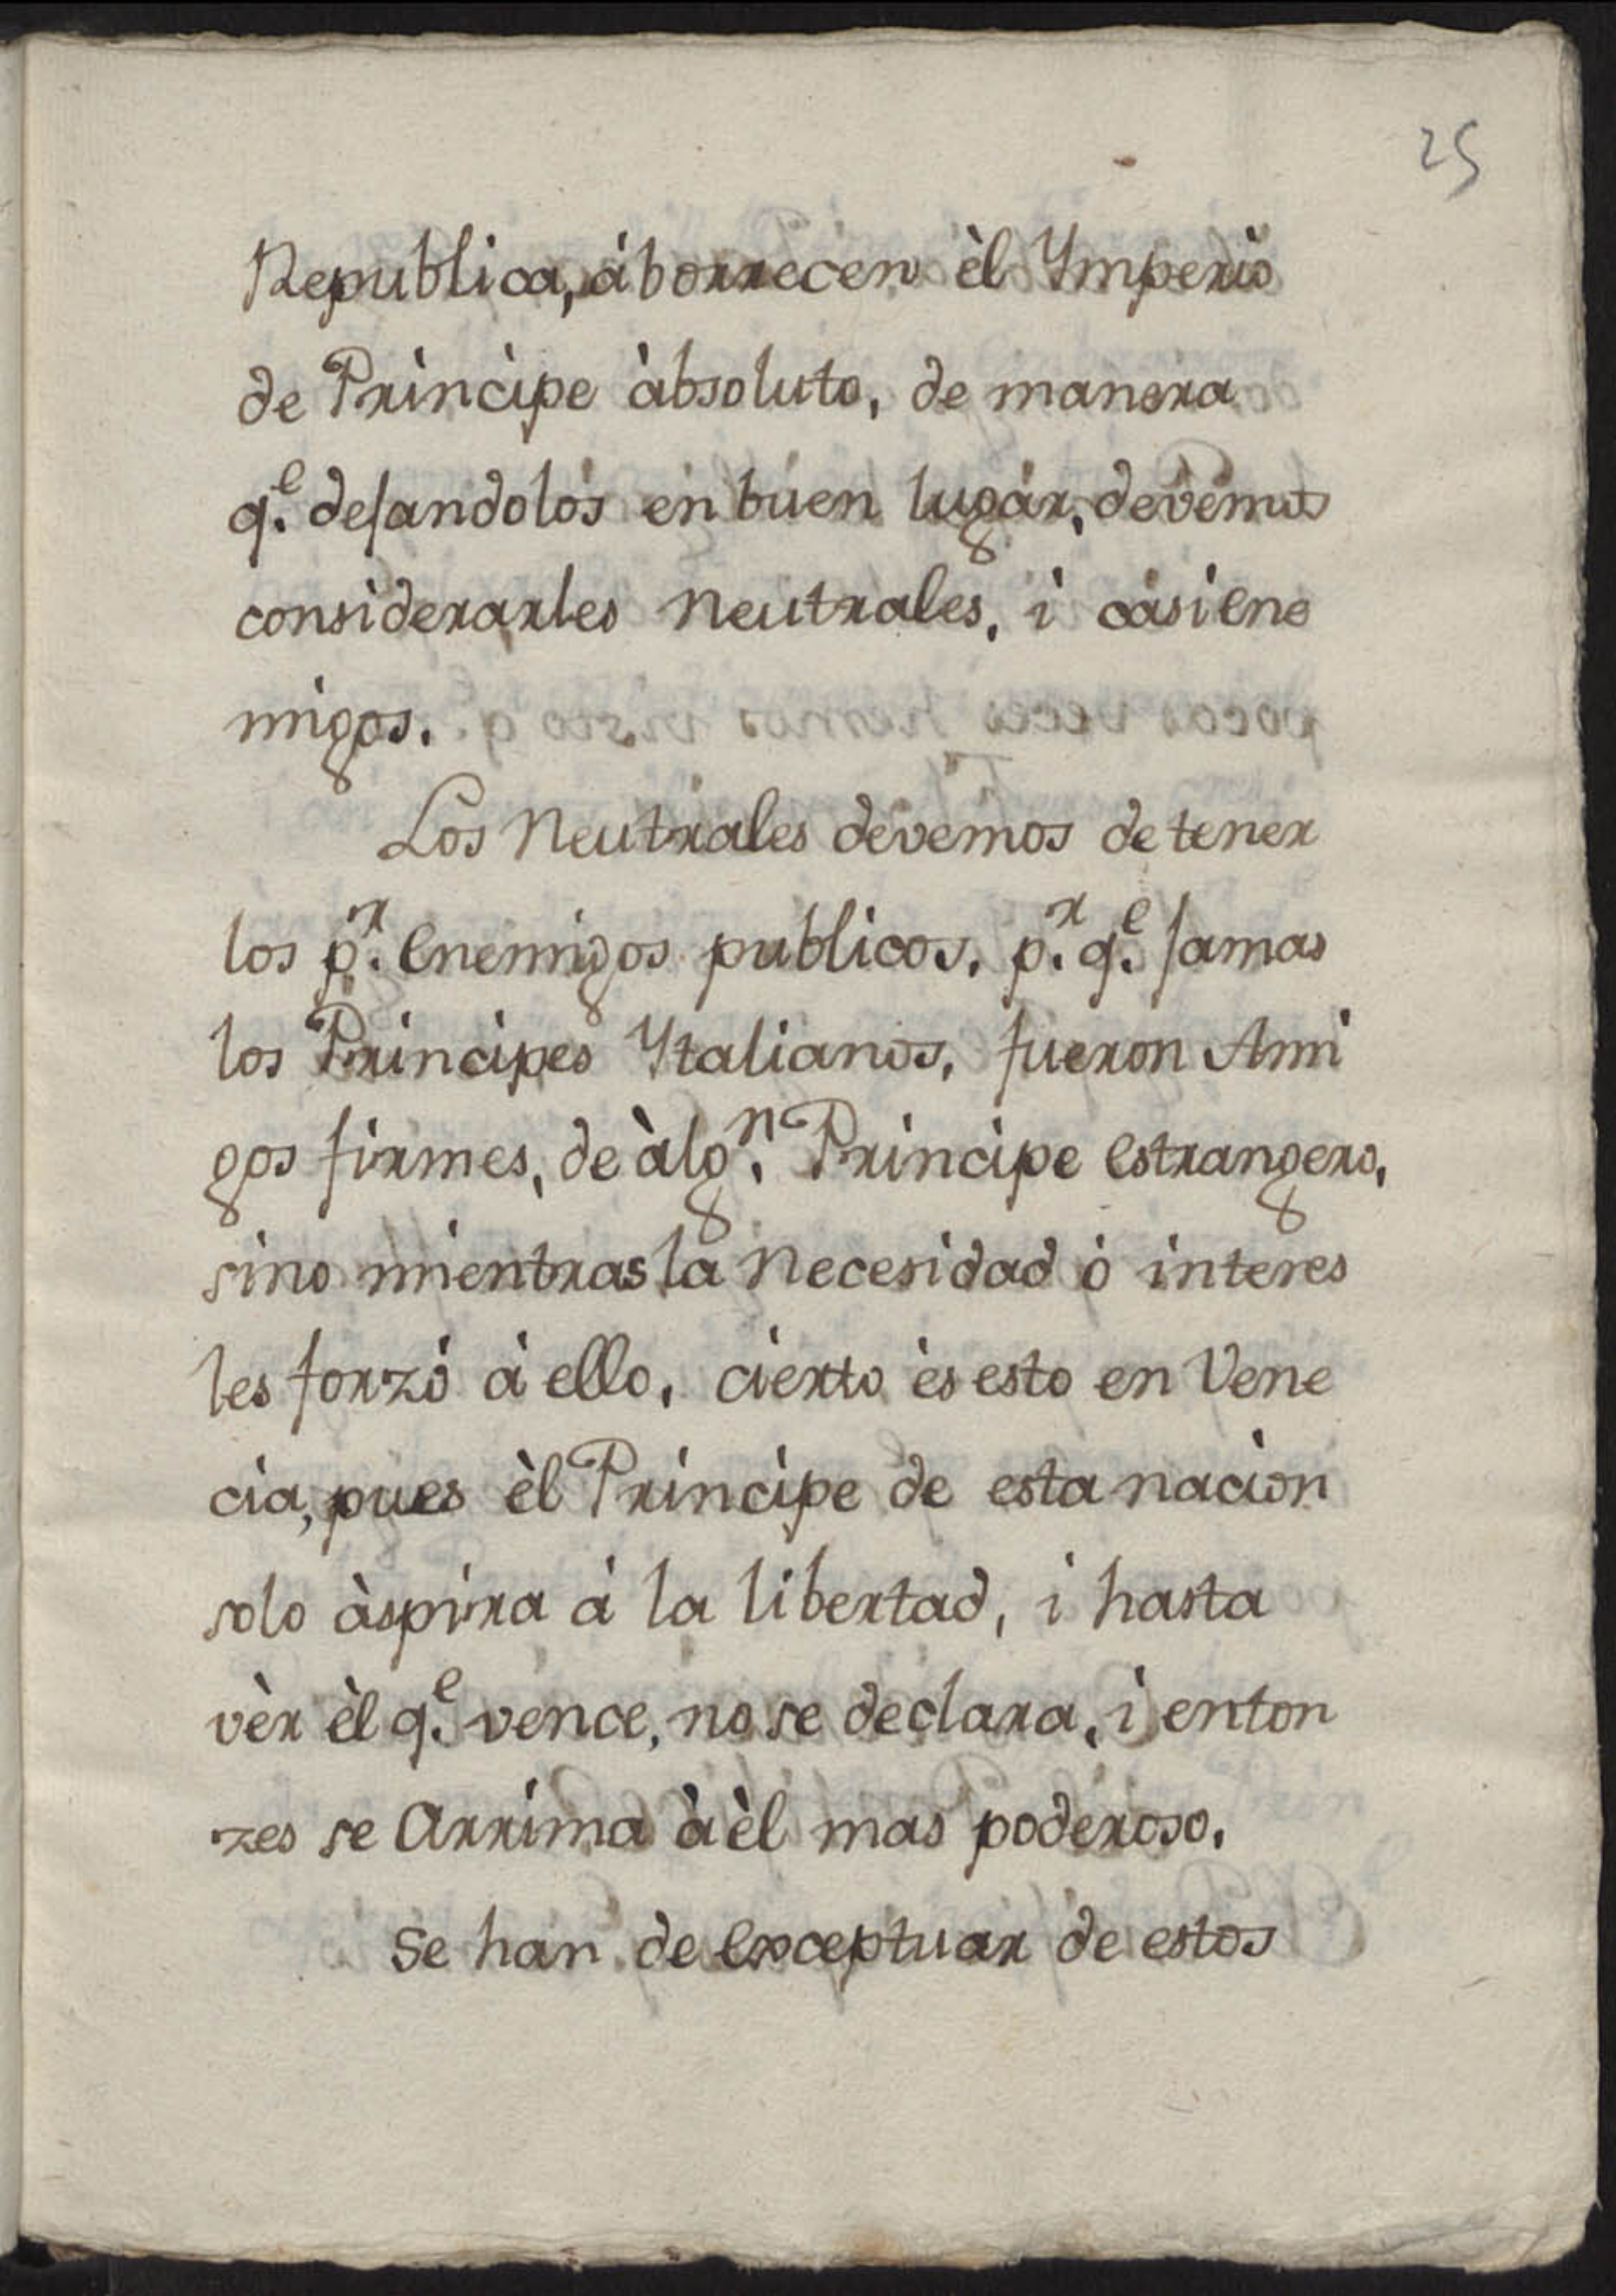 25
Republica, áborrecen èl Ymperio
de Principe àbsoluto, de manera
q.^e dejandolos en buen lugar, devemos
considerarles Neutrales, i casi ene
migos.
Los Neutrales devemos de tener
los p.^r enemigos publicos, p.^r q.^e jamas
los Principes Ytalianos, fueron Ami
gos firmes, de àlg.^n Principe estrangero,
sino mientras la Necesidad ó interes
les forzó á ello, cierto ès esto en Vene
cia, pues èl Principe de esta nacion
solo àspira á la libertad, i hasta
vèr èl q.^e vence, no se declara, i enton
zes se Arrima à èl mas poderoso.
Se han de exceptuar de estos